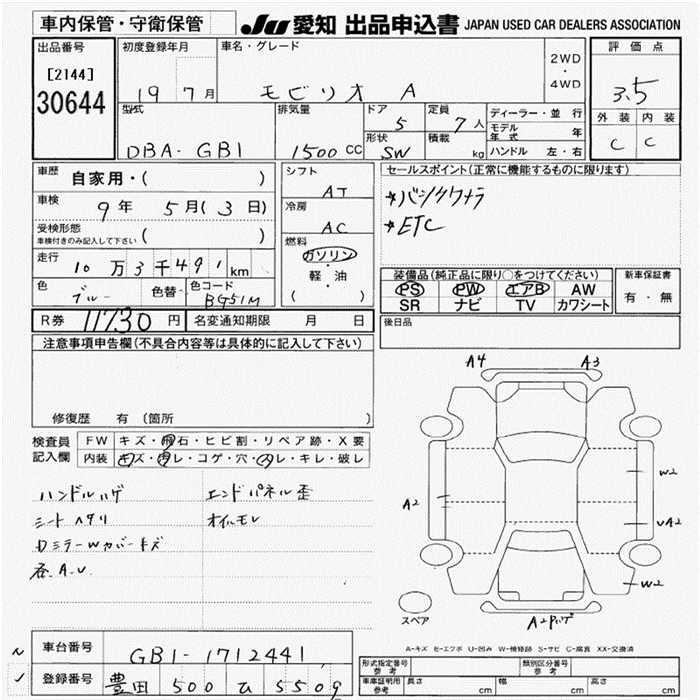 車内保管・守衛保管
JU 愛知 出品申込書 JAPAN USED CAR DEALERS ASSOCIATION
出品番号
[2144]
30644
初度登録年月
19 7月
車名・グレード
モビリオ A
2WD
・
4WD
評価点
3.5
外装 内装
C C
型式
DBA-GB1
排気量
1500 CC
ドア
5
形状
SW
定員
7人
積載
kg
ディーラー・並行
モデル年式 年
ハンドル 左・右
車歴 自家用・( )
車検
9年 5月(3日)
受検形態
車検付きのみ記入して下さい ( )
走行
10万3千491km
色
ブルー
色替
色コード
BG51M
シフト
AT
冷房
AC
燃料
ガソリン
・
軽・油
( )
セールスポイント(正常に機能するものに限ります)
ETC
装備品(純正品に限り○をつけてください)
PS PW エアB AW
SR ナビ TV カワシート
新車保証書
有・無
R券 11730円
名変通知期限 月 日
後日品
注意事項申告欄(不具合内容等は具体的に記入して下さい)
修復歴 有 (箇所 )
検査員記入欄
FW キズ・飛石・ヒビ割・リペア跡・X要
内装 キズ・汚レ・コゲ・穴・スレ・キレ・破レ
ハンドルハゲ エンドパネル歪
シートヘタリ オイルモレ
DミラーWカバーキズ
各A.U
A4 A3
A2
W2
UA2
W2
A2ハゲ
スペア
A-キズ E-エクボ U-凹み W-補修跡 S-サビ C-腐食 XX-交換済
車台番号 GB1-1712441
登録番号 豊田 500 ひ 5509
形式指定番号 参考
類別区分番号 参考
車庫証明用 参考 長さ cm 幅 cm 高さ cm